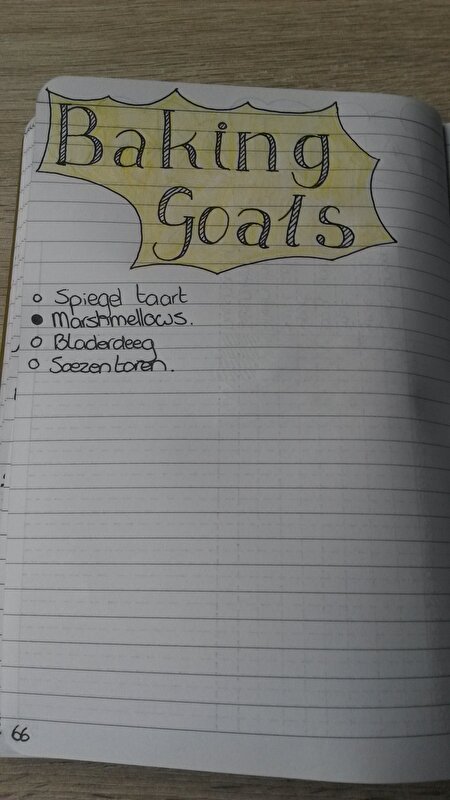 Baking
Goals
Spiegel taart
Marshmellows.
Bladerdeeg
Soezen toren.
66